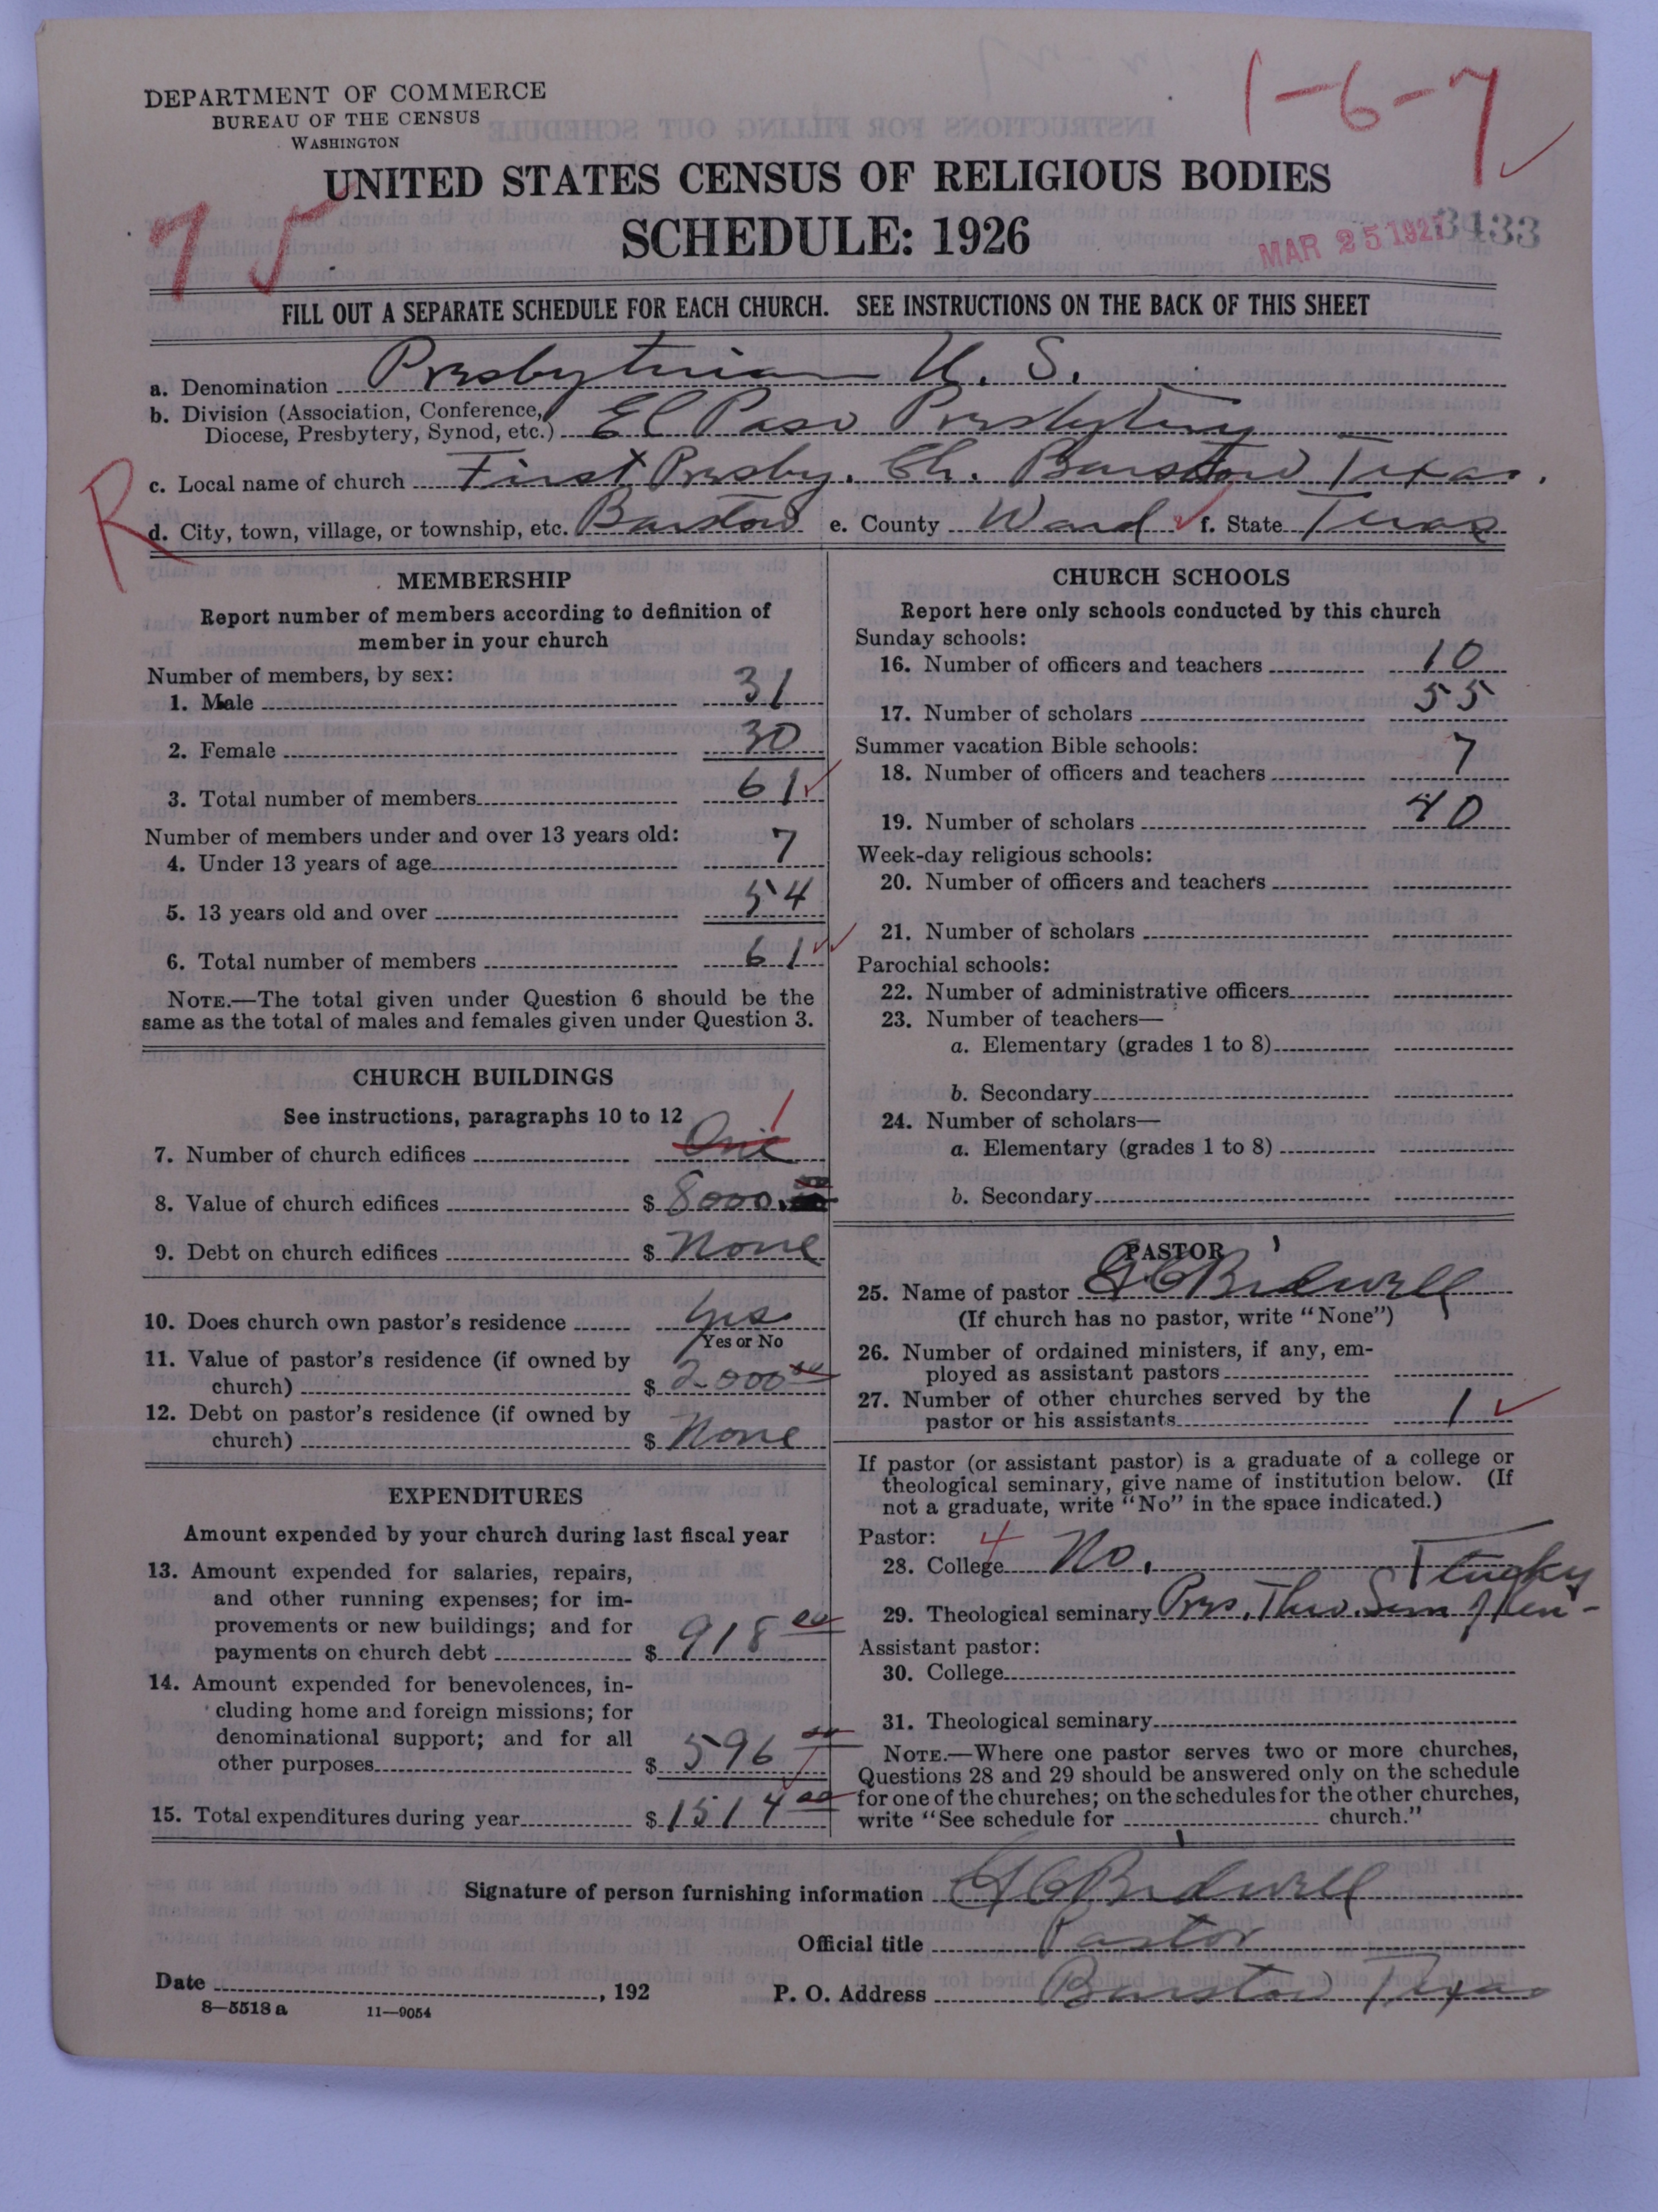 1-6-7
DEPARTMENT OF COMMERCE
BUREAU OF THE CENSUS
WASHINGTON
UNITED STATES CENSUS OF RELIGIOUS BODIES
75
SCHEDULE: 1926
MAR 25 1927 3433
FILL OUT A SEPARATE SCHEDULE FOR EACH CHURCH. SEE INSTRUCTIONS ON THE BACK OF THIS SHEET
a. Denomination Presbyterian U. S.
b. Division (Association, Conference, Diocese, Presbytery, Synod, etc.) El Paso Presbytery
R
c. Local name of church First Presby. Ch. Barstow Texas.
d. City, town, village, or township, etc. Barstow e. County Ward f. State Texas
MEMBERSHIP
Report number of members according to definition of
member in your church
Number of members, by sex:
1. Male 31
2. Female 30
3. Total number of members 61
Number of members under and over 13 years old:
4. Under 13 years of age 7
5. 13 years old and over 54
6. Total number of members 61
NOTE.—The total given under Question 6 should be the
same as the total of males and females given under Question 3.
CHURCH BUILDINGS
See instructions, paragraphs 10 to 12
7. Number of church edifices One 1
8. Value of church edifices $ 8000.
9. Debt on church edifices $ None
10. Does church own pastor's residence Yes
Yes or No
11. Value of pastor's residence (if owned by
church) $ 2000 00
12. Debt on pastor's residence (if owned by
church) $ None
EXPENDITURES
Amount expended by your church during last fiscal year
13. Amount expended for salaries, repairs,
and other running expenses; for im-
provements or new buildings; and for
payments on church debt $ 918 00
14. Amount expended for benevolences, in-
cluding home and foreign missions; for
denominational support; and for all
other purposes $ 596 00
15. Total expenditures during year $ 1514 00
CHURCH SCHOOLS
Report here only schools conducted by this church
Sunday schools:
16. Number of officers and teachers 10
17. Number of scholars 55
Summer vacation Bible schools:
18. Number of officers and teachers 7
19. Number of scholars 40
Week-day religious schools:
20. Number of officers and teachers
21. Number of scholars
Parochial schools:
22. Number of administrative officers
23. Number of teachers—
a. Elementary (grades 1 to 8)
b. Secondary
24. Number of scholars—
a. Elementary (grades 1 to 8)
b. Secondary
PASTOR
25. Name of pastor Bidwell
(If church has no pastor, write "None")
26. Number of ordained ministers, if any, em-
ployed as assistant pastors
27. Number of other churches served by the
pastor or his assistants 1
If pastor (or assistant pastor) is a graduate of a college or
theological seminary, give name of institution below. (If
not a graduate, write "No" in the space indicated.)
Pastor:
28. College 4 No.
29. Theological seminary Pres. Theo. Sem of Ken-
tucky
Assistant pastor:
30. College
31. Theological seminary
NOTE.—Where one pastor serves two or more churches,
Questions 28 and 29 should be answered only on the schedule
for one of the churches; on the schedules for the other churches,
write "See schedule for church."
Signature of person furnishing information Bidwell
Official title Pastor
Date , 192
P. O. Address Barstow Texas
8—5518 a 11—9054